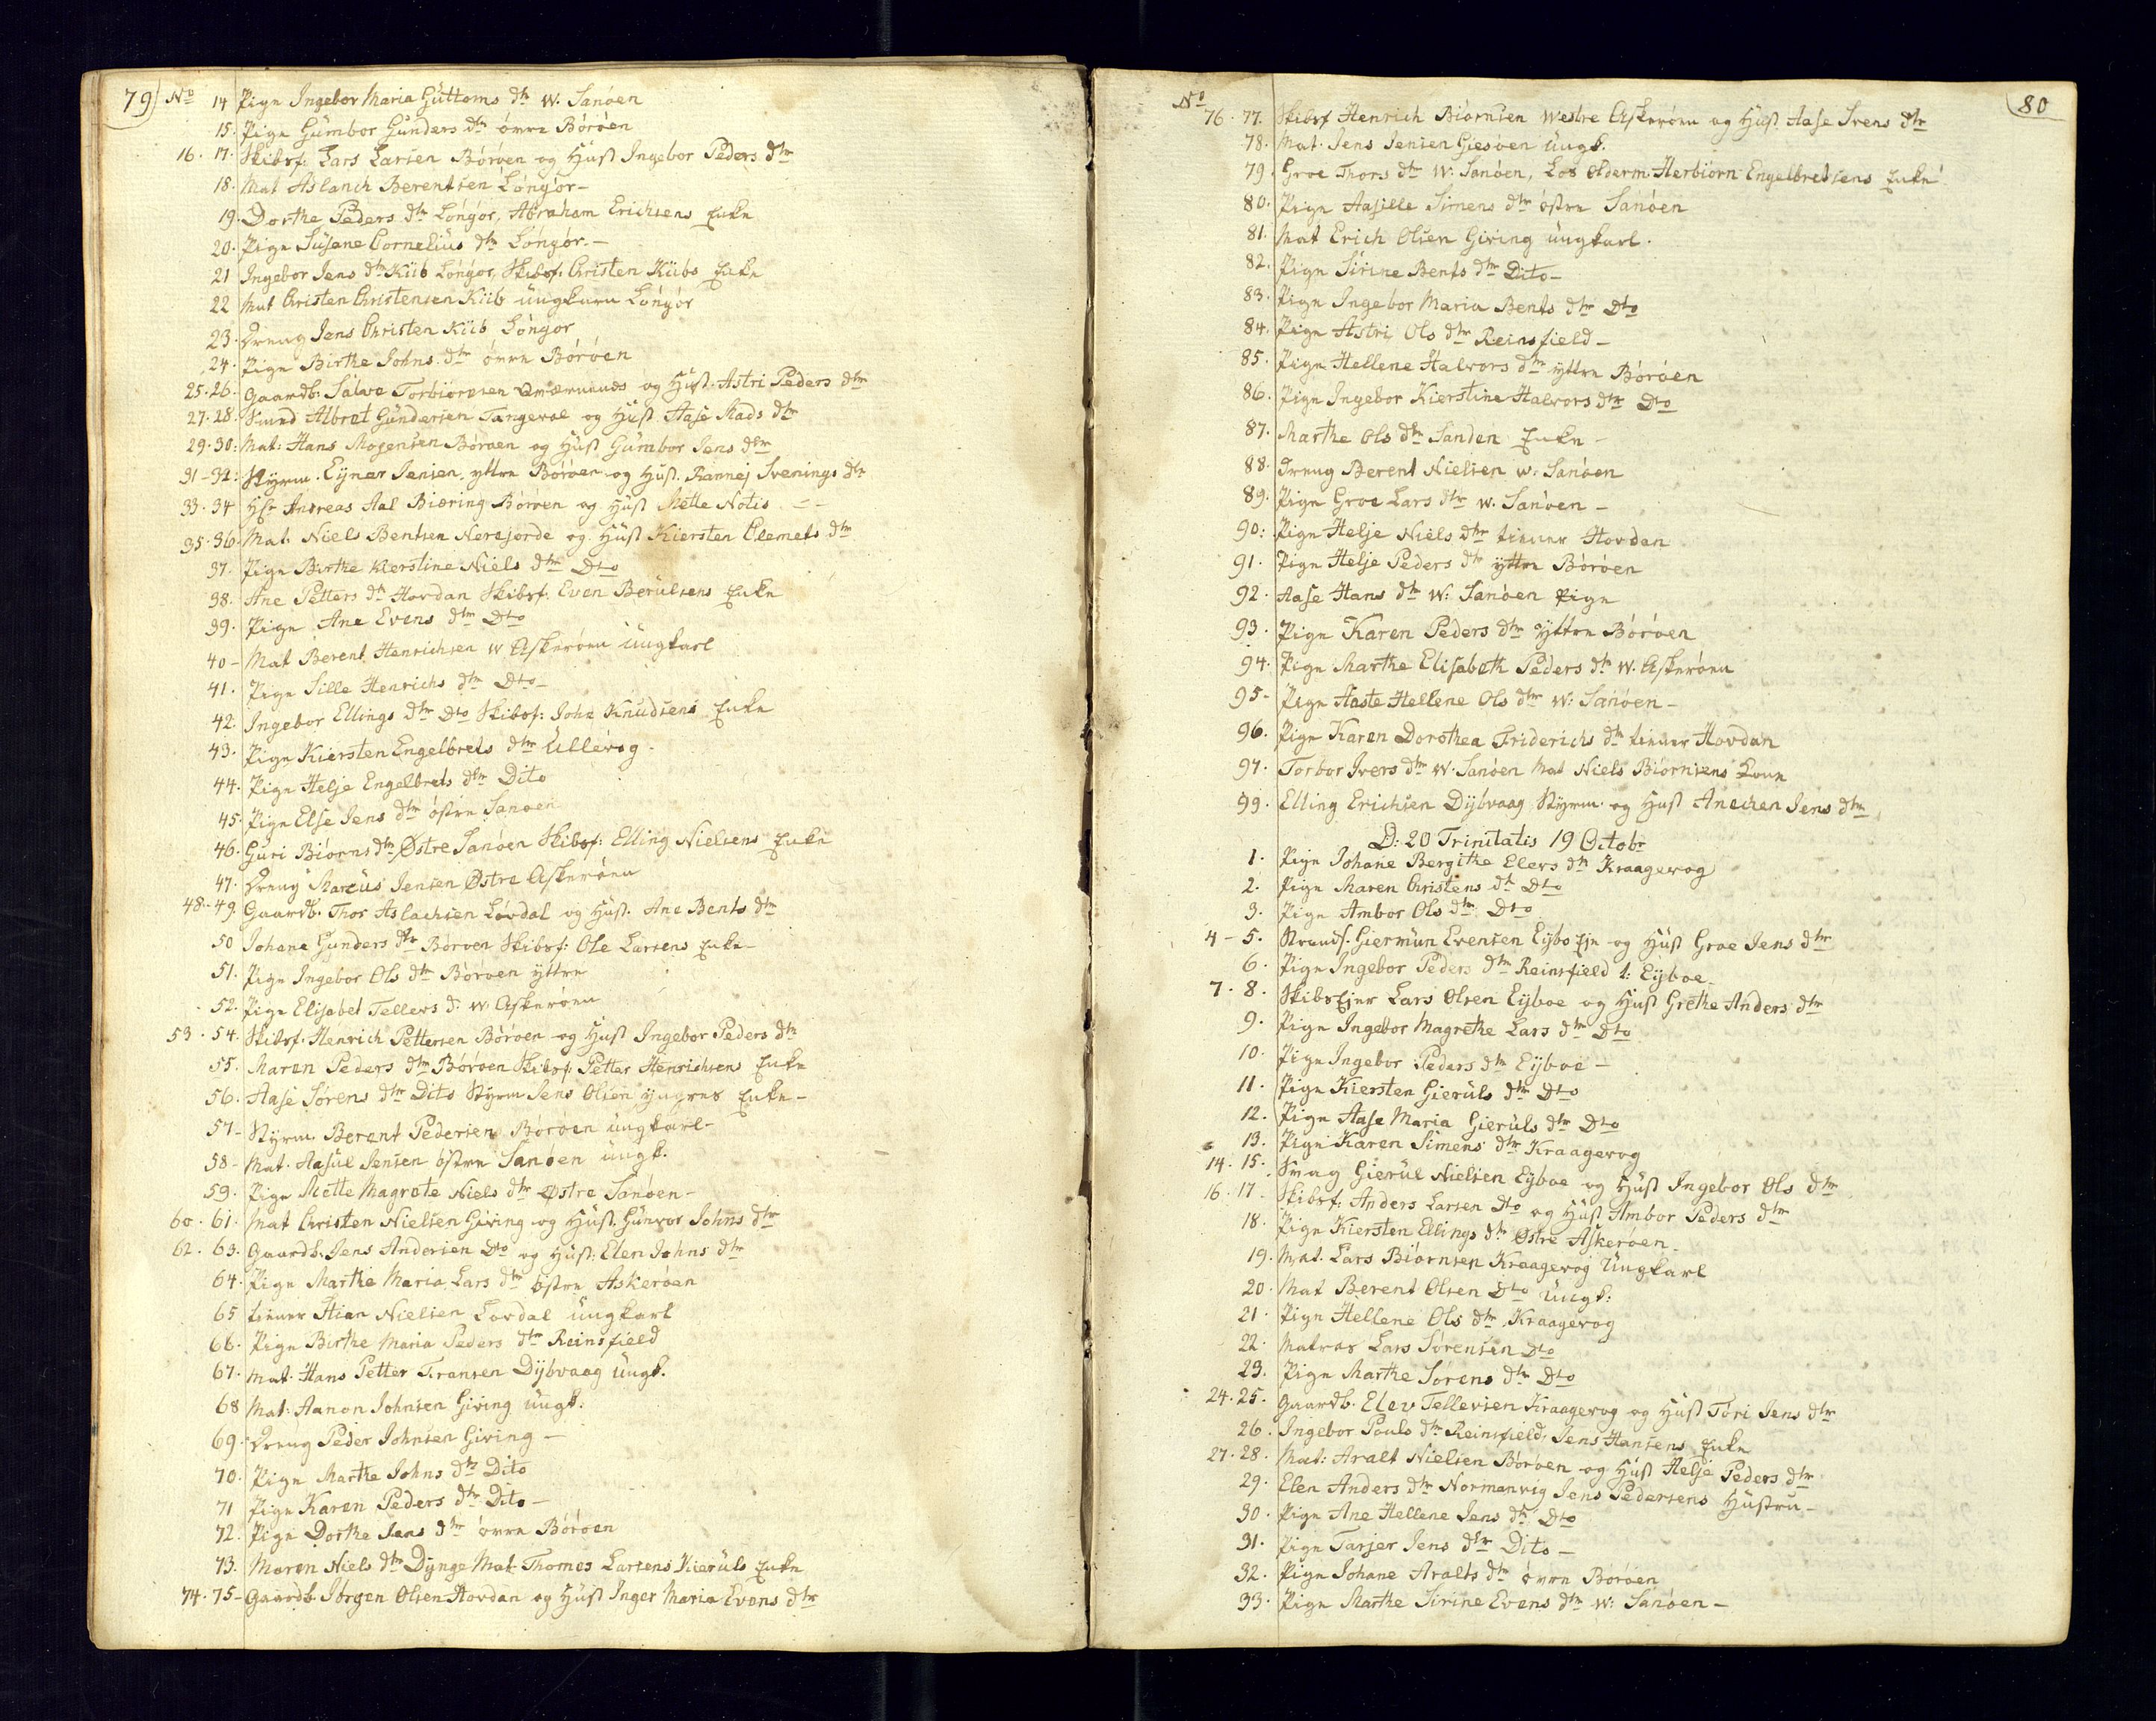 79 No 14 Pige Ingebor Maria Guttoms dtr W. Sanøen
15. Pige Gumbor Gunders dtr øvre Børøen
16. 17. Skibsf. Lars Larsen Børøen og Hust Ingebor Peders dtr
18. Mat Aslanch Berentsen Lóngór –
19. Dorthe Peders dtr Lóngór, Abraham Erichsens Enke
20. Pige Susane Cornelius dtr Lóngór. –
21 Ingebor Jens dtr Kiib Lóngor, Skibsf. Christen Kiibs Enke
22 Mat Christen Christensen Kiib ungkarn Lóngór
23. Dreng Jens Christen Kiib Lóngor
24. Pige Birthe Johns dtr óvre Børøen
25. 26. Gaardb. Salve Torbiørnsen og Hust. Astri Peders dtr
27. 28. Albret Gundersen Tangevae og Hust Aase Mads dtr
29. 30. Mat: Hans Mogensen Børøen og Hust Gumbor Jens dtr
31 – 32: Styrm. Eyner Jensen, yttre Børøen og Hust. Rannej Svenings dtr
33. 34 Hr Andreas Aal Biæring Børøen og Hust Mette Notis –
35. 36. Mat. Niels Bentsen Nerejorde og Hust Kiersten Clemets dtr
37. Pige Birthe Kierstine Niels dtr Dto
38. Ane Petters dtr Hovdan Skibsf. Even Berulsens Enke
39. Pige Ane Evens dtr Dto
40 – Mat Berent Henrichsen W Askerøen ungkarl
41. Pige Sille Henrichs dtr Dto –
42. Ingebor Ellings dtr Dto Skibsf: John Knudsens Enke
43. Pige Kiersten Engelbrets dtr Ullevog.
44. Pige Helje Engelbrets dtr Dito
45. Pige Else Jens dtr østre Sanøen
46. Guri Biørns dtr Østre Sanøen Skibsf: Elling Nielsens Enke
47. Dreng Marcus Jensen Østre Askerøen
48. – 49. Gaardb. Thor Aslachsen Lóvdal og Hust. Ane Bents dtr
50 Johane Gunders dtr Børøen Skibsf: Ole Larsens Enke –
51. Pige Ingebor Ols dtr Børøen yttre
52. Pige Elisabet Tellevs d: W. Askerøen
53. 54. Skibsf. Henrich Pettersen Børøen og Hust Ingebor Peders dtr
55. Maren Peders dtr Børøen Skibsf. Petter Henrichsens Enke
56. Aase Sørens dtr Dito Styrm Jens Olsen yngres Enke –
57 – Styrm. Berent Pedersen Børøen ungkarl –
58 – Mat. Aasul Jensen østre Sanøen ungk.
59. Pige Mette Magrete Niels dtr Østre Sanøen –
60. 61. Mat Christen Nielsen Giving og Hust. Gunvor Johns dtr
62. 63. Gaardb. Jens Andersen Dto og Hust. Elen Johns dtr
64. Pige Marthe Maria Lars dtr østre Askerøen
65 tiener Stian Nielsen Lovdal ungkarl
66. Pige Birthe Maria Peders dtr Reinsfield
67. Mat. Hans Petter Fransen Dybvaag ungk.
68 Mat: Aanon Johnsen Giving ungk.
69. Dreng Peder Johnsen Giving –
70. Pige Marthe Johns dtr Dito
71 Pige Karen Peders dtr Dito –
72. Pige Dorthe Jens dtr óvre Børøen
73. Maren Niels dtr Dynge Mat Thomes Larsens Kieruls Enke
74. 75 – Gaardb. Jørgen Olsen Hovdan og Hust Inger Maria Evens dtr
No 80
76. 77. Skibsf Henrich Biørnsen Westre Askerøen og Hust Aase Ivens dtr
78. Mat. Jens Jensen Giesøen ungk.
79. Groe Thors dtr W. Sanøen, Los olderm. Herbiørn Engelbretsens Enke
80. Pige Aasille Simens dtr østre Sanøen
81. Mat Erich Olsen Giving ungkarl.
82. Pige Sirine Bents dtr Dito –
83. Pige Ingebor Maria Bents dtr Dto
84. Pige Astri Ols dtr Reinsfield –
85. Pige Hellene Halvors dtr yttre Børøen
86. Pige Ingebor Kierstine Halvors dtr Dto
87. Marthe Ols dtr Sanden Enke –
88. Dreng Berent Nielsen W. Sanøen
89. Pige Groe Lars dtr W. Sanøen –
90: Pige Helje Niels dtr tiener Hovdan
91. Pige Helje Peders dtr yttre Børøen
92. Aase Hans dtr W: Sanøen Pige
93. Pige Karen Peders dtr yttre Børøen
94. Pige Marthe Elisabeth Peders dtr W. Askerøen
95 – Pige Aaste Hellene Ols dtr W: Sanøen –
96. Pige Karen Dorothea Friderichs dtr tiener Hovdan
97. Torbor Ivers dtr W. Sanøen Mat Niels Biørnsens Kone
99. Elling Erichsen Dybvaag Styrm. og Hust Anechen Jens dtr
D: 20 Trinitatis 19 Octobr
1. Pige Johane Bergithe Elevs dtr Kraagevog
2. Pige Maren Christens dtr Dto
3. Pige Ambor Ols dtr Dto
4 – 5. Strands. Giermun Evensen Eyboe Eje og Hust Groe Jens dtr
6. Pige Ingebor Peders dtr Reinsfield 1: Eyboe
7. 8. Skibs Ejer Lars Olsen Eyboe og Hust Grethe Anders dtr
9. Pige Ingebor Magrethe Lars dtr Dto
10. Pige Ingebor Peders dtr Eyboe –
11. Pige Kiersten Gieruls dtr Dto
12. Pige Aase Maria Gieruls dtr Dto
13. Pige Karen Simens dtr Kraagevog
14. 15. Svag Gierul Nielsen Eyboe og Hust Ingebor Ols dtr
16. 17 Skibsf. Anders Larsen Dto og Hust Ambor Peders dtr
18. Pige Kiersten Ellings dtr Østre Askerøen –
19. Mat. Lars Biørnsen Kraagevog Ungkarl
20. Mat Berent Olsen Dto ungk:
21. Pige Hellene Ols dtr Kraagevog
22. Matros Lars Sørensen Dto
23. Pige Marthe Sørens dtr Dto
24. 25. Gaardb. Elev Tellevsen Kraagevog og Hust Tóri Jens dtr
26. Ingebor Pouls dtr Reinsfield, Jens Hansens Enke
27. 28. Mat: Aralt Nielsen Børøen og Hust Helje Peders dtr
29. Elen Anders dtr Normanvig Jens Pedersens Hustru –
30. Pige Ane Hellene Jens dtr Dto
31. Pige Tarjer Jens dtr Dito –
32. Pige Johane Aralts dtr óvre Børøen
33. Pige Marthe Sirine Evens dtr W: Sanøen –